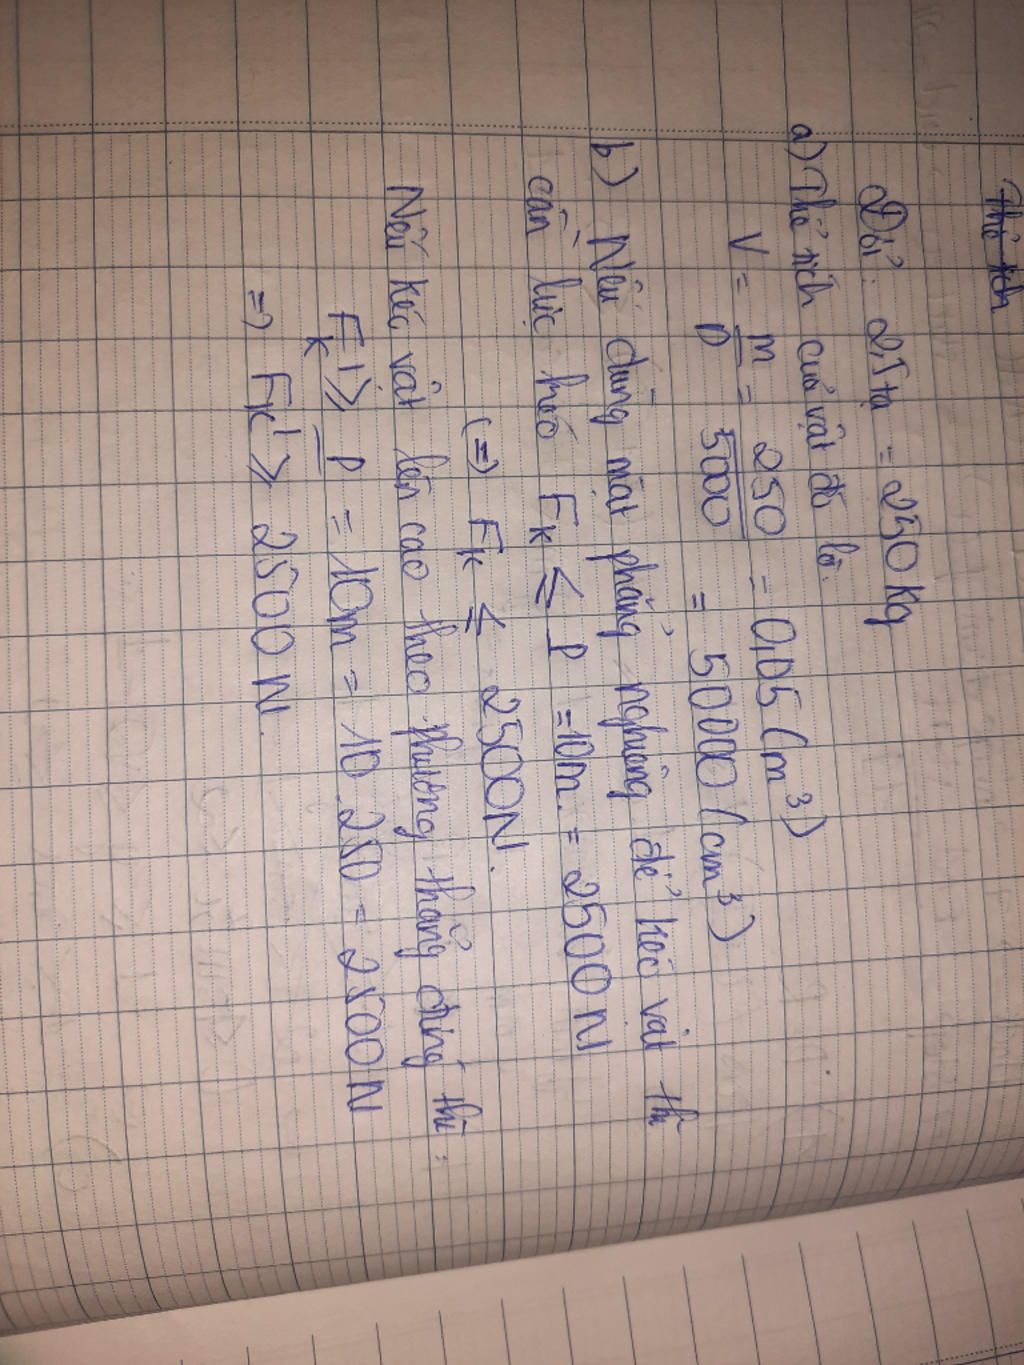 Thể tích
Đổi: 2,5 tạ = 250 Kg
a) Thể tích của vật đó là:
V = m/D = 250/5000 = 0,05 (m³)
= 50000 (cm³)
b) Nếu dùng mặt phẳng nghiêng để kéo vật thì
cần lực kéo Fk ≤ P = 10m = 2500 N
(=) Fk ≤ 2500N.
Nếu kéo vật lên cao theo phương thẳng đứng thì:
Fk' ≥ P = 10m = 10.250 = 2500N
=) Fk' ≥ 2500 N.